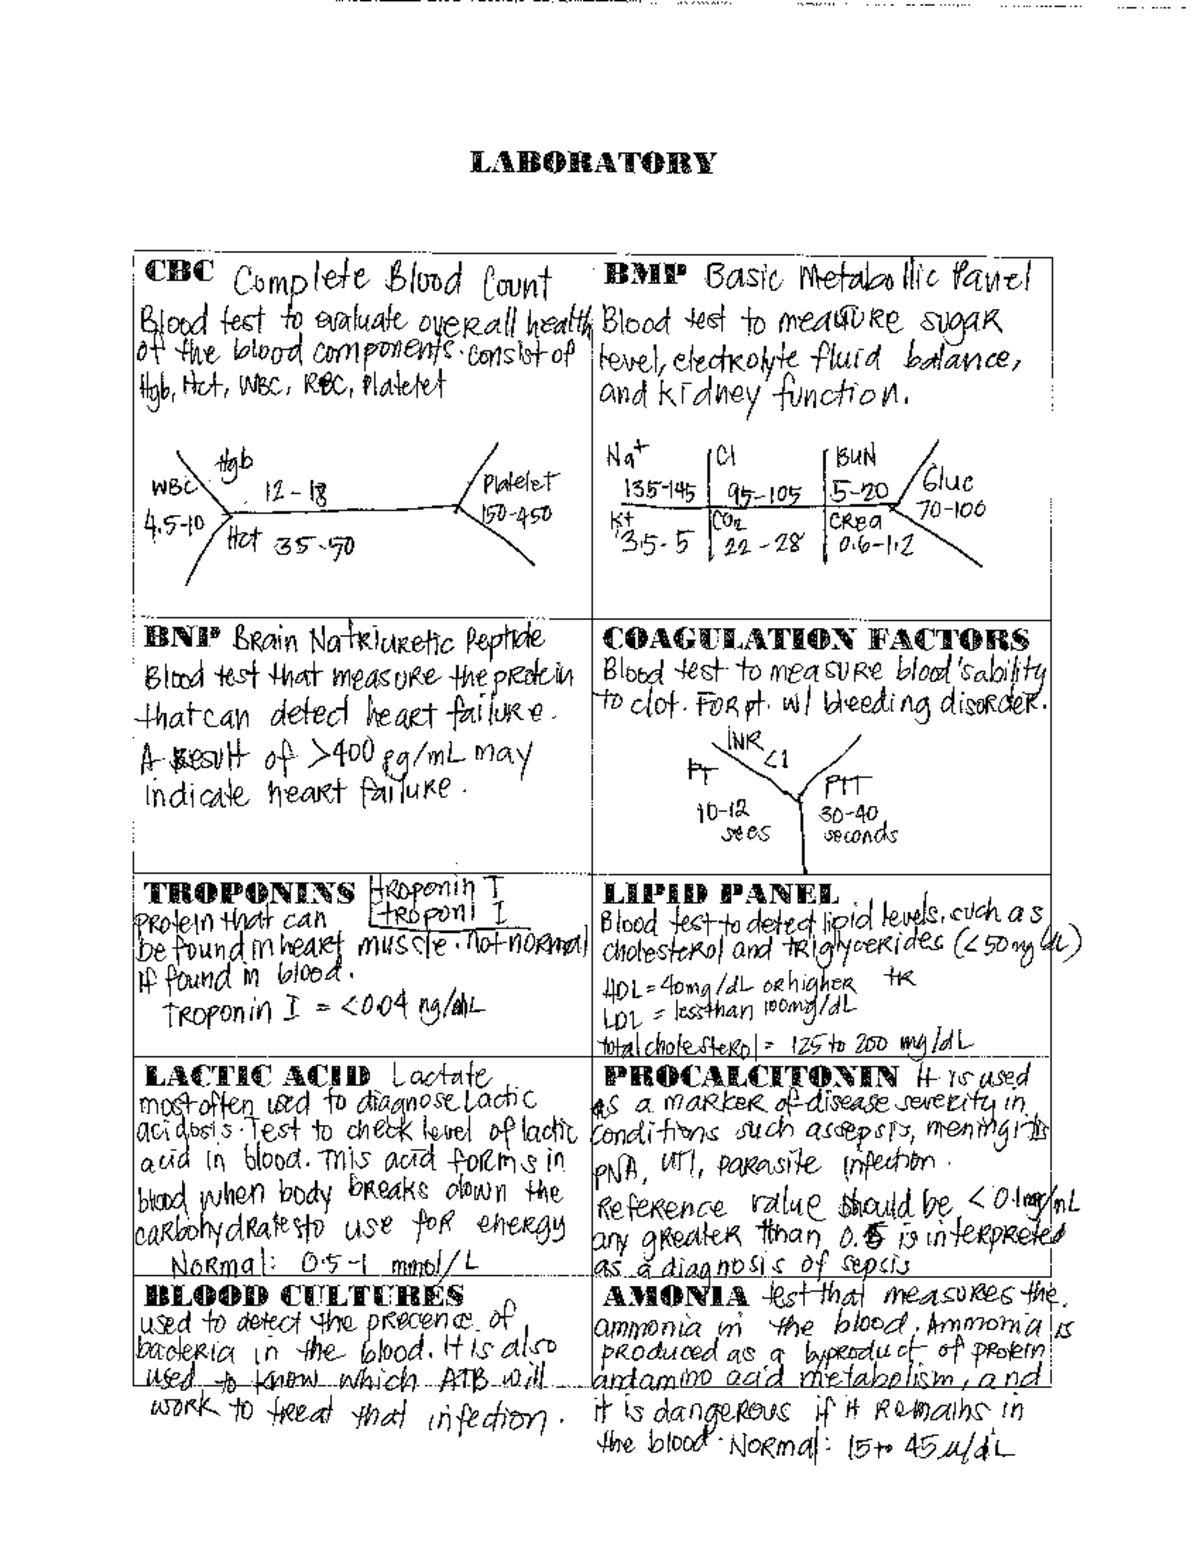 LABORATORY
CBC Complete Blood Count
Blood test to evaluate overall health
of the blood components. consist of
Hgb, Hct, WBC, RBC, Platelet
WBC
4.5-10
Hgb
12-18
Hct 35-50
Platelet
150-450
BMP Basic Metabollic Panel
Blood test to measure sugar
level, electrolyte fluid balance,
and kidney function.
Na+
135-145
Cl
95-105
BUN
5-20
Gluc
70-100
K+
3.5-5
CO2
22-28
CRea
0.6-1.2
BNP Brain Natriuretic Peptide
Blood test that measure the protein
that can detect heart failure.
A result of >400 pg/mL may
indicate heart failure.
COAGULATION FACTORS
Blood test to measure blood's ability
to clot. For pt. w/ bleeding disorder.
INR
<1
PT
10-12
secs
PTT
30-40
seconds
TROPONINS troponin T
troponi I
protein that can
be found in heart muscle. not normal
if found in blood.
Troponin I = <0.04 ng/mL
LIPID PANEL
Blood test to detect lipid levels, such as
cholesterol and triglycerides (<50mg/dL)
HDL = 40mg/dL or higher TR
LDL = less than 100mg/dL
total cholesterol = 125 to 200 mg/dL
LACTIC ACID Lactate
most often used to diagnose lactic
acidosis. Test to check level of lactic
acid in blood. This acid forms in
blood when body breaks down the
carbohydrates to use for energy
Normal: 0.5-1 mmol/L
PROCALCITONIN It is used
as a marker of disease severity in
conditions such as sepsis, meningitis
PNA, UTI, parasite infection.
Reference value should be <0.1 /mL
any greater than 0.5 is interpreted
as a diagnosis of sepsis
BLOOD CULTURES
used to detect the precence of
bacteria in the blood. It is also
used to know which ATB will
work to treat that infection.
AMONIA test that measures the
ammonia in the blood. Ammonia is
produced as a byproduct of protein
and amino acid metabolism, and
it is dangerous if it remains in
the blood. Normal: 15 to 45 u/dL